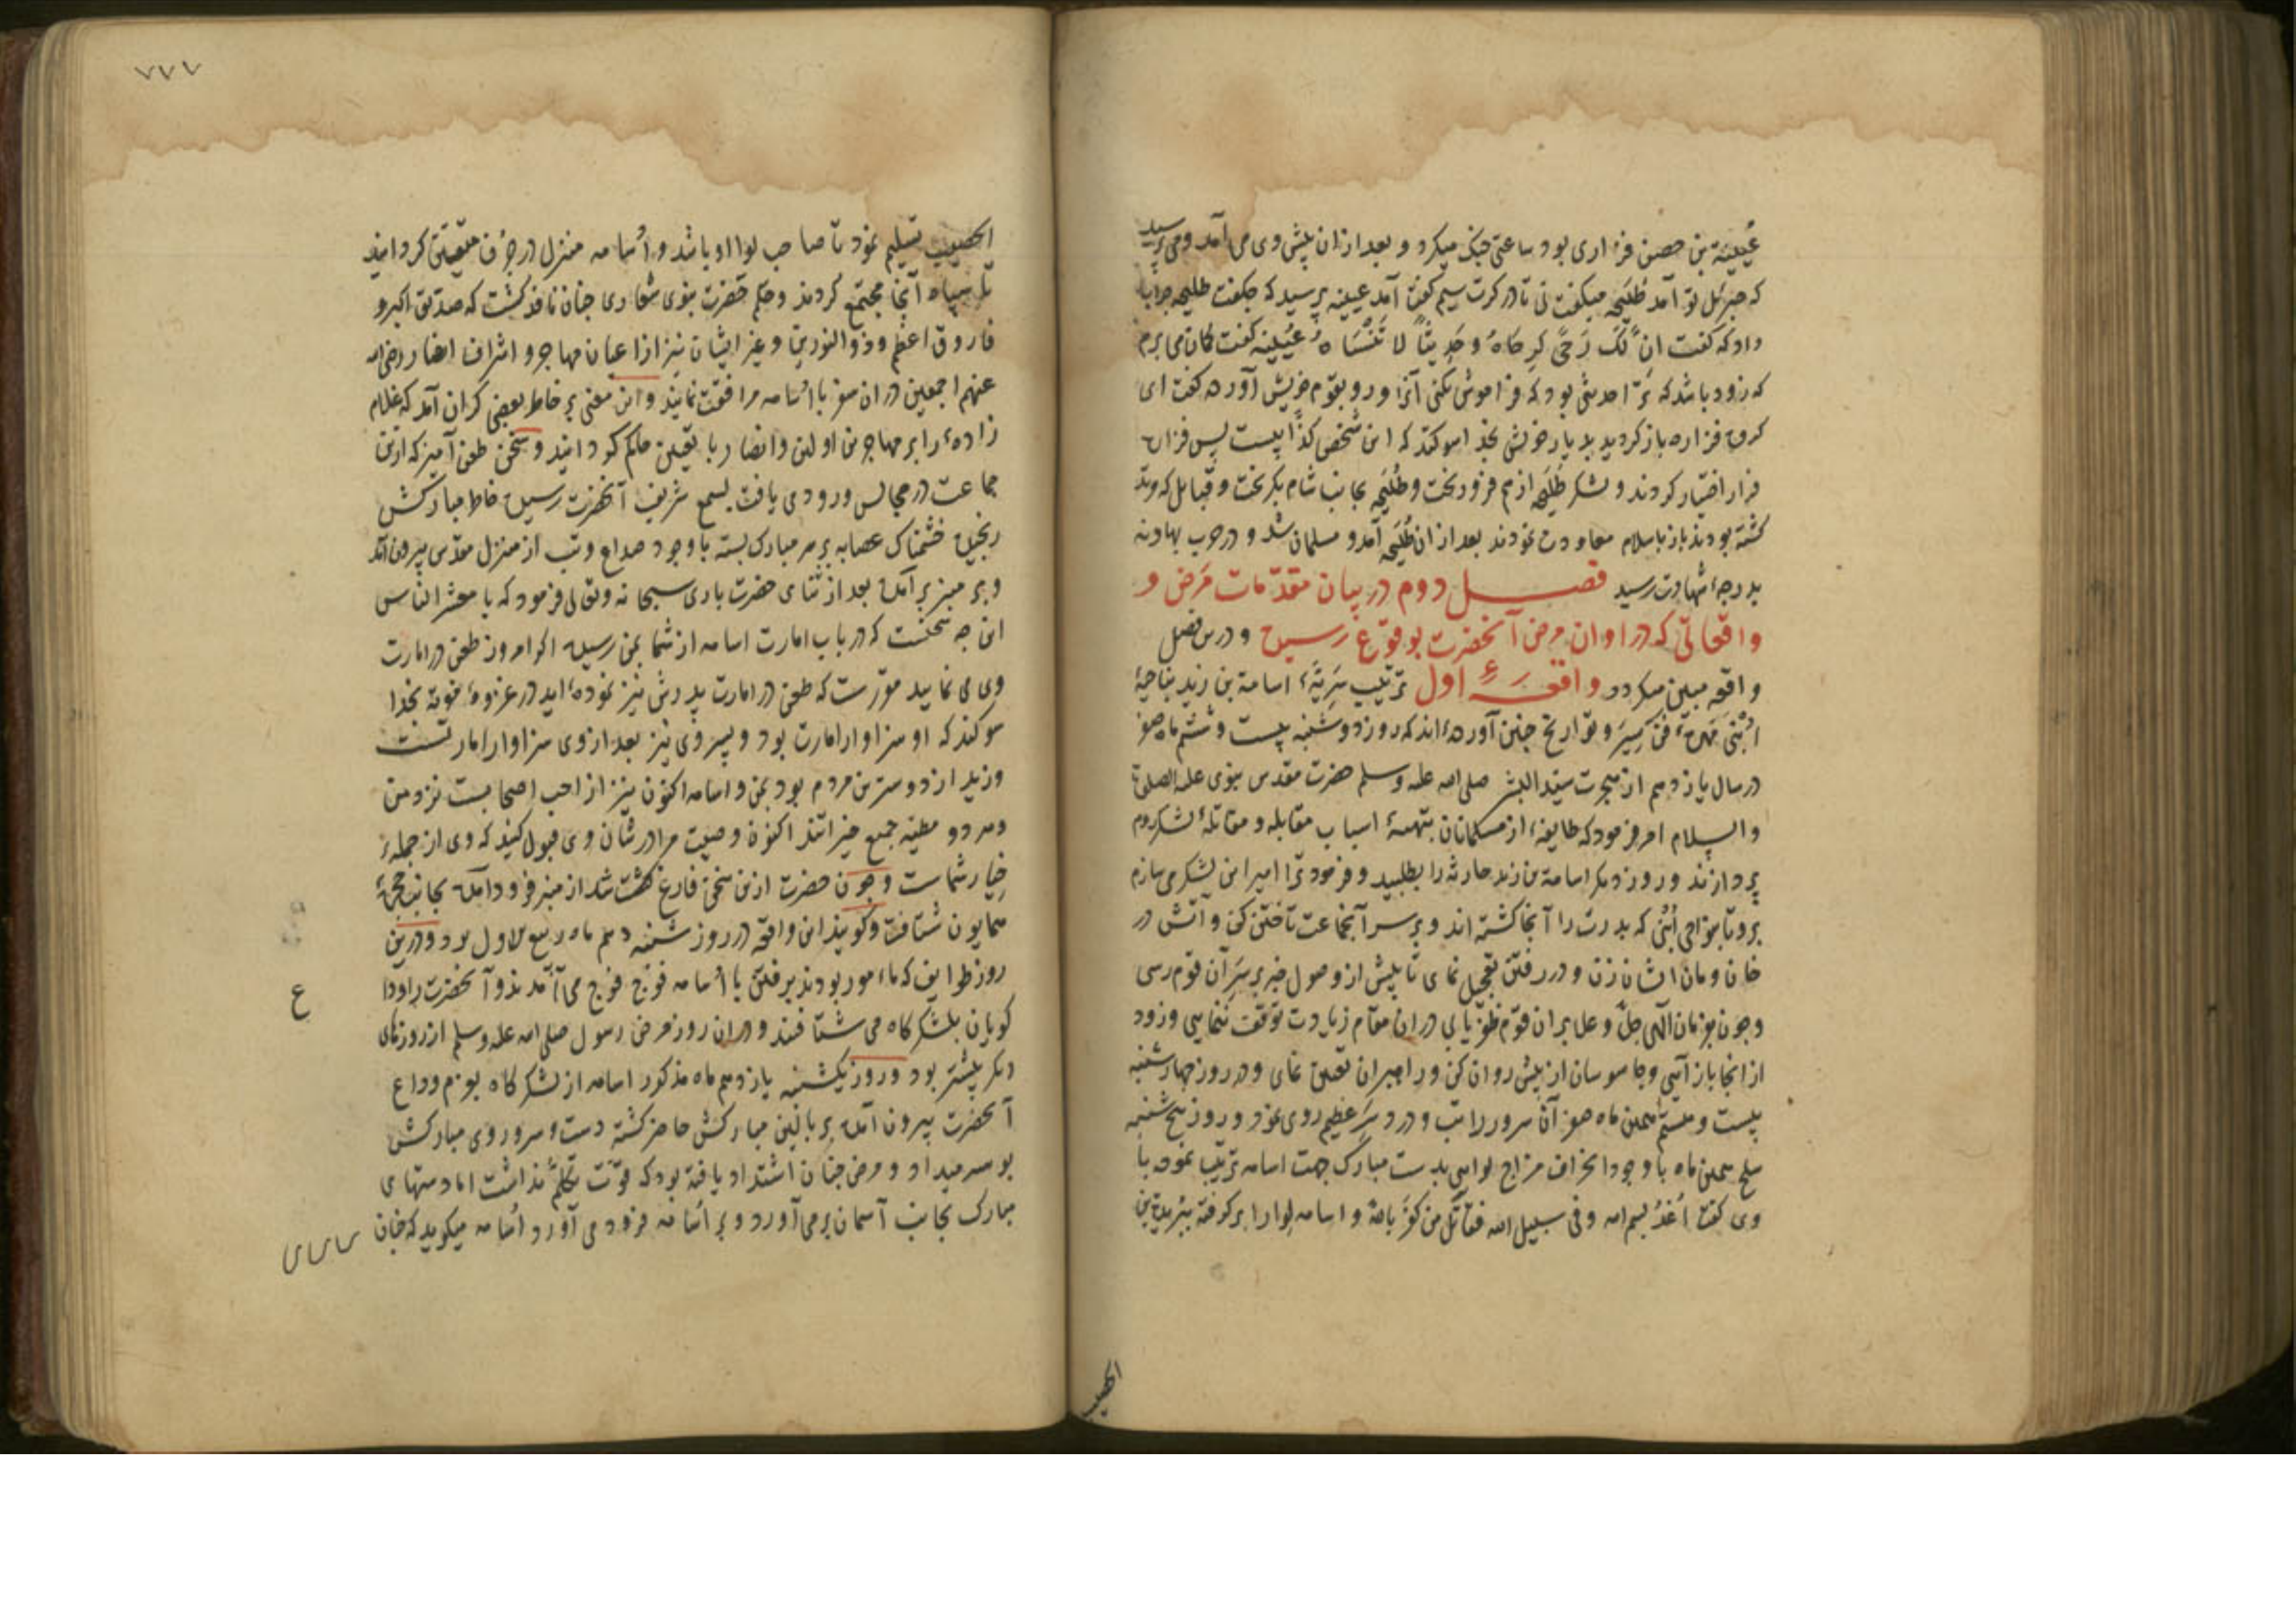 عُیَینَة بن حصن فزاری بود ساعتی جنک میکرد و بعد ازان پیش وی می آمد و می پرسید
که جبرئل بتو آمد طُلَیحَه میکفت نی تا در کرت سیم کفت آمد عیینه پرسید که چکفت طلیحه جواب
داد که کفت انّ لَکَ رَحًی کرحَاهُ وحَدِیثًا لا تَنْسَاهُ عُیَینه کفت کمان می برم
که زود باشد که ترا حدیثی بود که فراموش نکنی آنرا و رو بقوم خویش آورده کفت ای
کروه فزاره باز کردید بدیار خویش بخدا سوکند که این شخص کذّابیست پس فزاره
فرار اختیار کردند و لشکر طُلَیحَه ازهم فرو ریخت و طُلَیحَه بجانب شام بکریخت و قبایل که مرتد
کشته بودند باز باسلام معاودت نمودند بعد ازان طُلَیحَه آمد و مسلمان شد و در حرب نهاوند
بدرجهٔ شهادت رسید فصل دوم در بیان مقدّمات مَرَض و
واقعاتی که در اوان مرض آنحضرت بوقوع رسیده و درین فصل
واقعه مبین میکردد واقعهٔ اول ترتیب سَرِیّهٔ اسامة بن زید بناحیهٔ
اُبْنی ٔ فن سِیَر و تواریخ چنین آورده‌اند که روز دوشنبه بیست و ششم ماه صفر
در سال یازدهم از هجرت سیّد البشر صلی الله علیه وسلم حضرت مقدس نبوی علیه الصلوة
والسلام امر فرمود که طایفهٔ از مسلمانان بتهیهٔ اسباب مقابله و مقاتلهٔ لشکر روم
پردازند و روز دیکر اسامة بن زید حارثه را بطلبید و فرمود ترا امیر این لشکر می سازم
برو تا بنواحی اُبْنی که پدرت را آنجا کشته‌اند و بر سر آنجماعت تاختن کن و آتش در
خان و مان ایشان زن و در رفتن تعجیل نمای تا پیش از وصول خبر بر سَر آن قوم رسی
و چون بفرمان الهی جلّ و علا بران قوم ظفر یابی دران مقام زیادت توقف ننمایی و زود
از آنجا باز آیی و جاسوسان از پیش روان کن و راهبران تعیین نمای و در روز چهارشنبه
بیست و هشتم همین ماه صفر آن سرور را تب و درد سَر عظیم روی نمود و روز پنجشنبه
سلخ همین ماه با وجود انحراف مزاج لوایی بدست مبارک جهت اسامه ترتیب نموده با
وی کفت اُغْزُ بسم الله وفی سبیل الله فقاتل من کفَرَ بالله و اسامه لوا را برکرفته ببُریدة بن
الحصیب
۷۷۷
الحصیب تسلیم نمود تا صاحب لوا او باشد و اُسامه منزل در جُرف متعیّن کردانید
تا سپاه آنجا مجتمع کردند و حکم حضرت نبوی شعاری چنان نافذ کشت که صدیق اکبر و
فاروق اعظم و ذو النورین و غیر ایشان نیز از اعیان مهاجر و اشراف انصار رضی الله
عنهم اجمعین دران سفر با اُسامه مرافقت نمایند و این معنی بر خاطر بعضی کران آمد که غلام
زادهٔ را بر مهاجرین اولین و انصار با یقین حاکم کردانید و سخن طعن آمیز که ازین
جماعت در مجالس ورود می یافت بسمع شریف آنحضرت رسیده خاطر مبارکش
رنجیده خشمناک عصابه بر سر مبارک بسته با وجود صداع و تب از منزل مقدّس بیرون آمد
و بر منبر برآمده بعد از ثنای حضرت باری سبحانه وتعالی فرمود که یا معشر الناس
این چه سخنست که در باب امارت اسامه از شما بمن رسیده اکر امروز طعن در امارت
وی می نمایید مقررست که طعن در امارت پدرش نیز نموده‌اید در غزوهٔ موته بخدا
سوکند که او سزاوار امارت بود و پسر وی نیز بعد از وی سزاوار امارتست
و زید از دوسترین مردم بود بمن و اسامه اکنون نیز از احب اصحابست نزد من
و هر دو مظنه جمیع خیراتند اکنون وصیت مرا در شان وی قبول کنید که وی از جملهٔ
خیار شماست و چون حضرت ازین سخن فارغ کشت از منبر فرود آمده بجانب حجرهٔ
همایون شتافت و کویند این واقعه در روز شنبه دهم ماه ربیع الاول بود و درین
روز طوایف که مامور بودند برفتن با اُسامه فوج فوج می آمدند و آنحضرت را وداع
کویان بلشکرکاه می شتافتند و دران روز مرض رسول صلی الله علیه وسلم از روزهای
دیکر بیشتر بود و روز یکشنبه یازدهم ماه مذکور اسامه از لشکرکاه بعزم وداع
آنحضرت بیرون آمده بر بالین مبارکش حاضر کشته دست و سر و روی مبارکش
بوسه میداد و مرض چنان اشتداد یافته بود که قوّت تکلّم نداشت اما دستهای
مبارک بجانب آسمان بر می آورد و بر اُسامه فرود می آورد اُسامه میکوید که چنان
ع